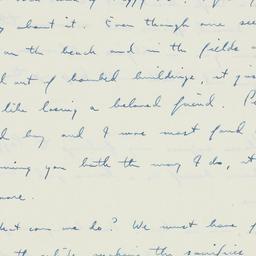 about it. Even though one see
on the beach and in the fields
out of bombed buildings, it jus
like losing a beloved friend.
boy and I was most fond
you both the way I do, it
more.
can we do? We must have
making the sacrifice